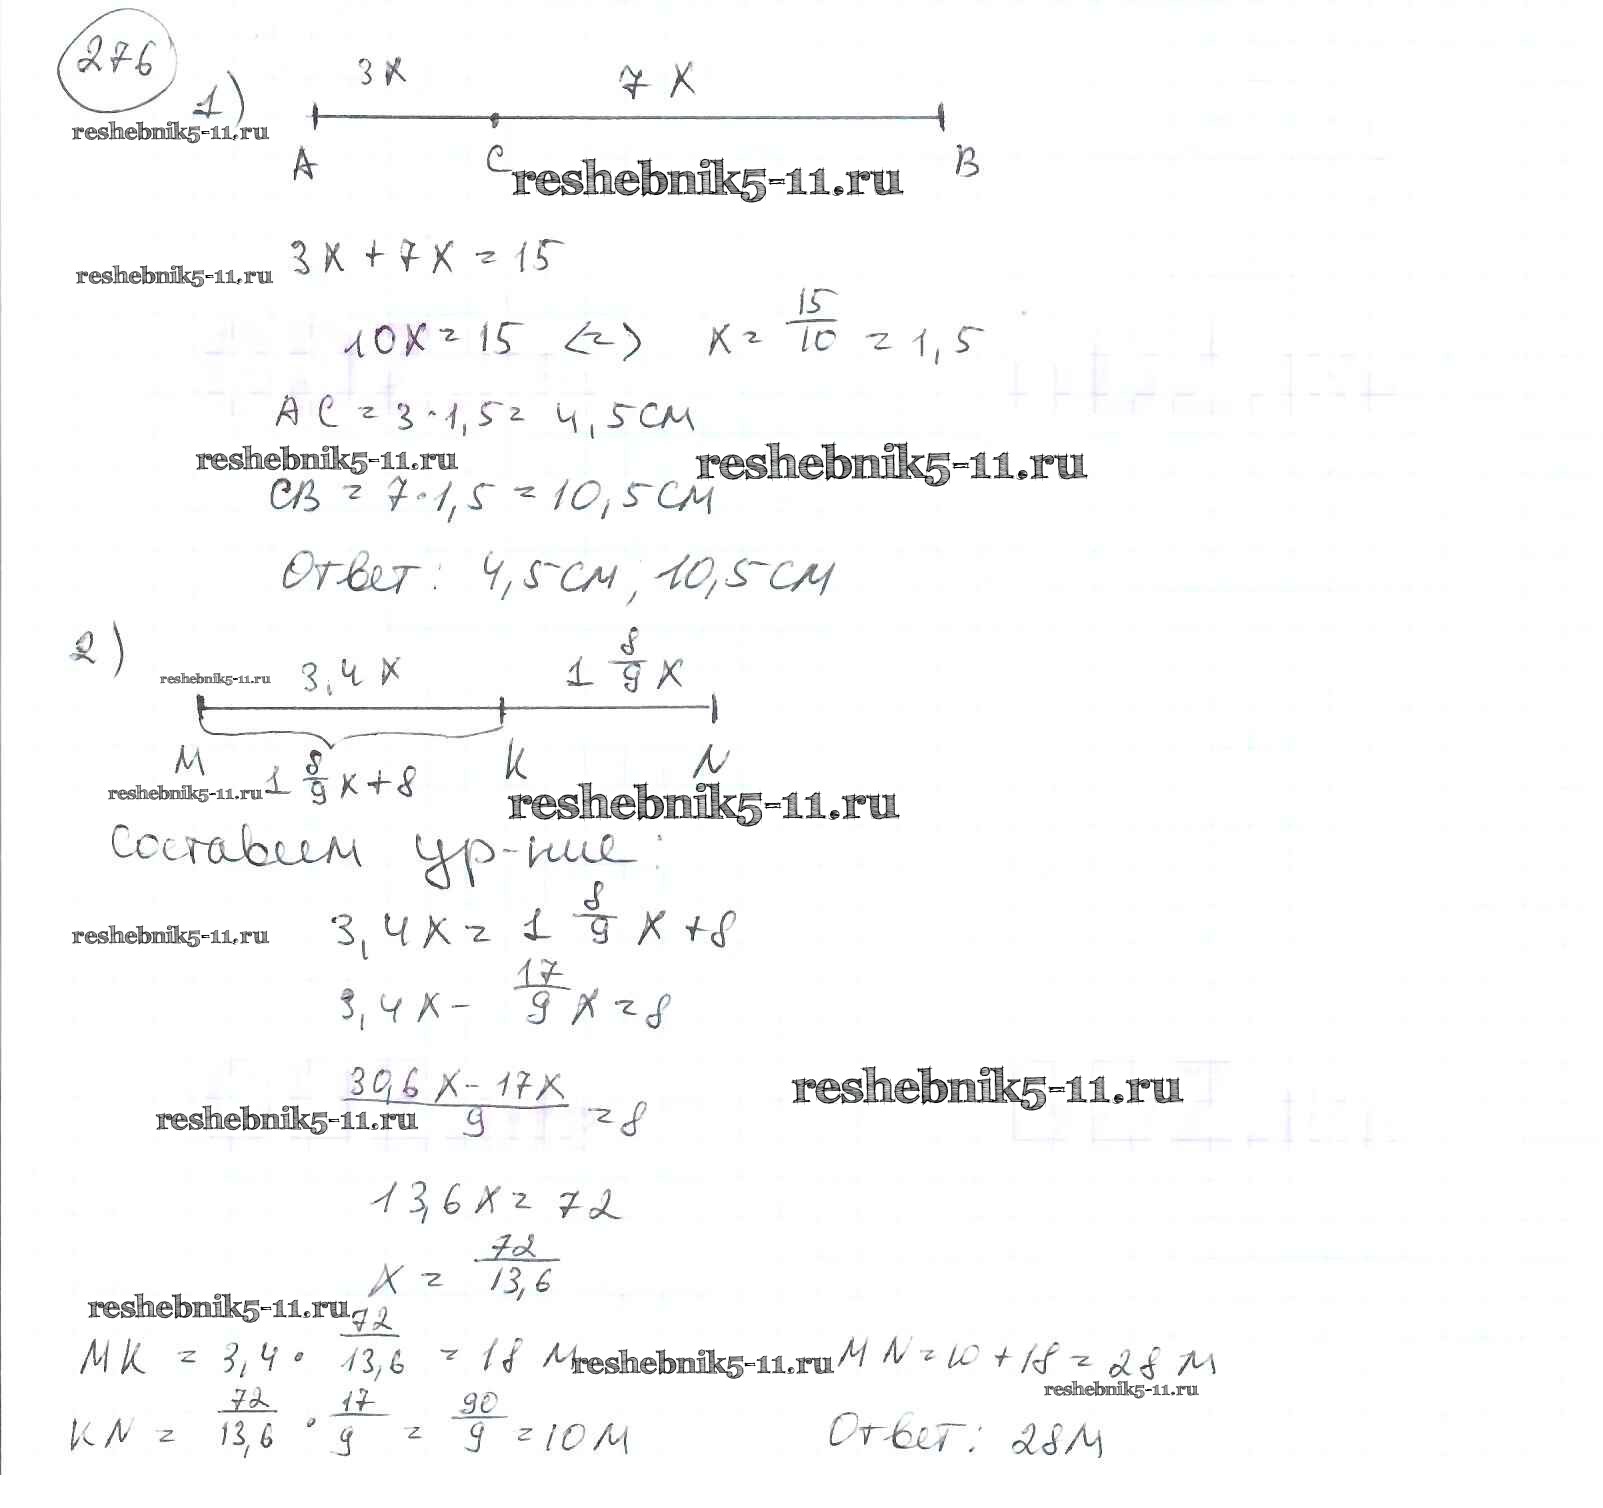 276
1)
3x 7x
reshebnik5-11.ru
A C B
reshebnik5-11.ru
3x + 7x = 15
reshebnik5-11.ru
10x = 15 <=> x = 15/10 = 1,5
AC = 3 · 1,5 = 4,5 см
reshebnik5-11.ru reshebnik5-11.ru
CB = 7 · 1,5 = 10,5 см
Ответ: 4,5 см; 10,5 см
2)
reshebnik5-11.ru 3,4x 1 8/9 x
M K N
reshebnik5-11.ru 1 8/9 x + 8 reshebnik5-11.ru
Составим ур-ние:
reshebnik5-11.ru 3,4x = 1 8/9 x + 8
3,4x - 17/9 x = 8
reshebnik5-11.ru
(30,6x - 17x)/9 = 8
reshebnik5-11.ru
13,6x = 72
x = 72/13,6
reshebnik5-11.ru
MK = 3,4 · 72/13,6 = 18 м reshebnik5-11.ru MN = 10 + 18 = 28 м
reshebnik5-11.ru
KN = 72/13,6 · 17/9 = 90/9 = 10 м Ответ: 28 м